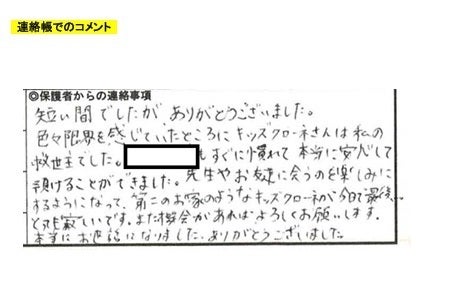 連絡帳でのコメント
◎保護者からの連絡事項
短い間でしたが、ありがとうございました。
色々限界を感じていたところにキッズクローネさんは私の
救世主でした。 もすぐに慣れて本当に安心して
預けることができました。先生やお友達に会うのを楽しみに
するようになって、第二のお家のようなキッズクローネが今日で最後…
と大変寂しいです。また機会があればよろしくお願いします。
本当にお世話になりました。ありがとうございました。